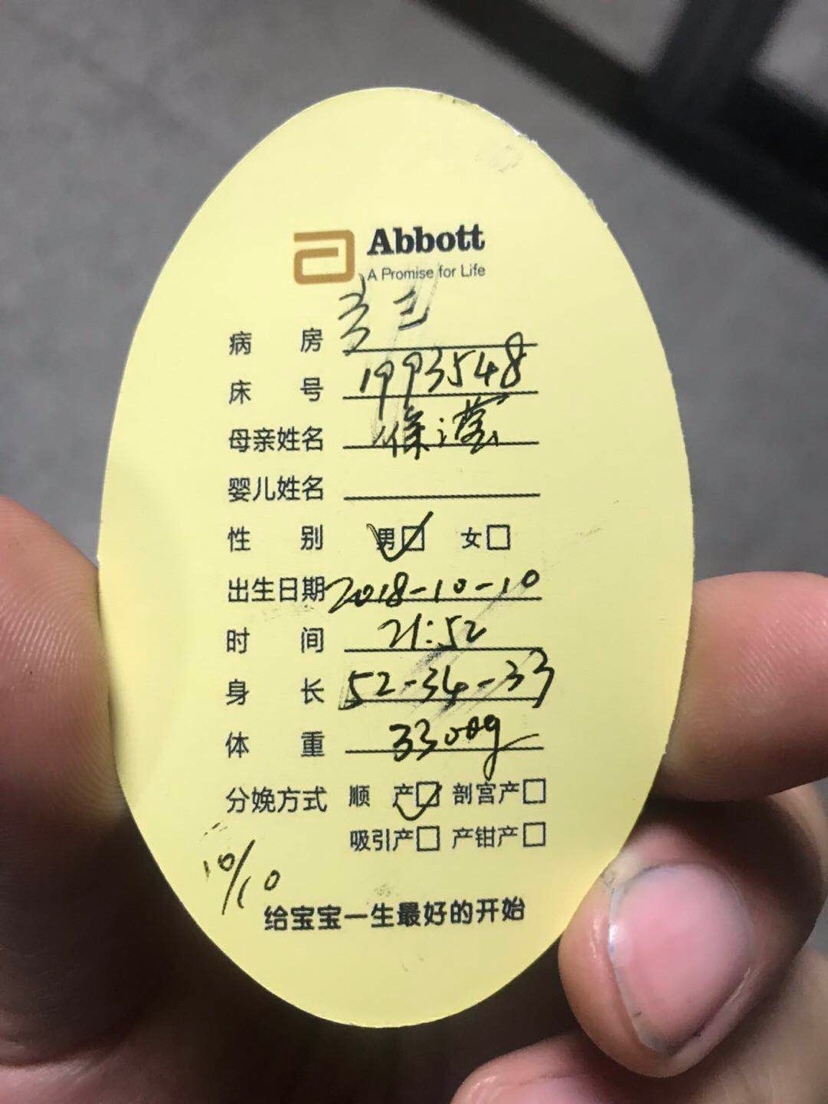 Abbott
A Promise for Life
病房
床号 1993548
母亲姓名 徐滢
婴儿姓名
性别 男☑ 女□
出生日期 2018-10-10
时间 21:52
身长 52-34-33
体重 3300g
分娩方式 顺产☑ 剖宫产□
吸引产□ 产钳产□
10/10
给宝宝一生最好的开始